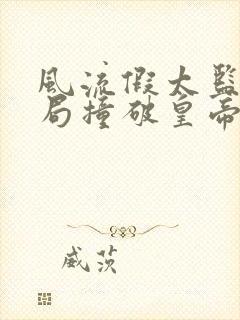 風流假太監
局撞破皇帝
威茨